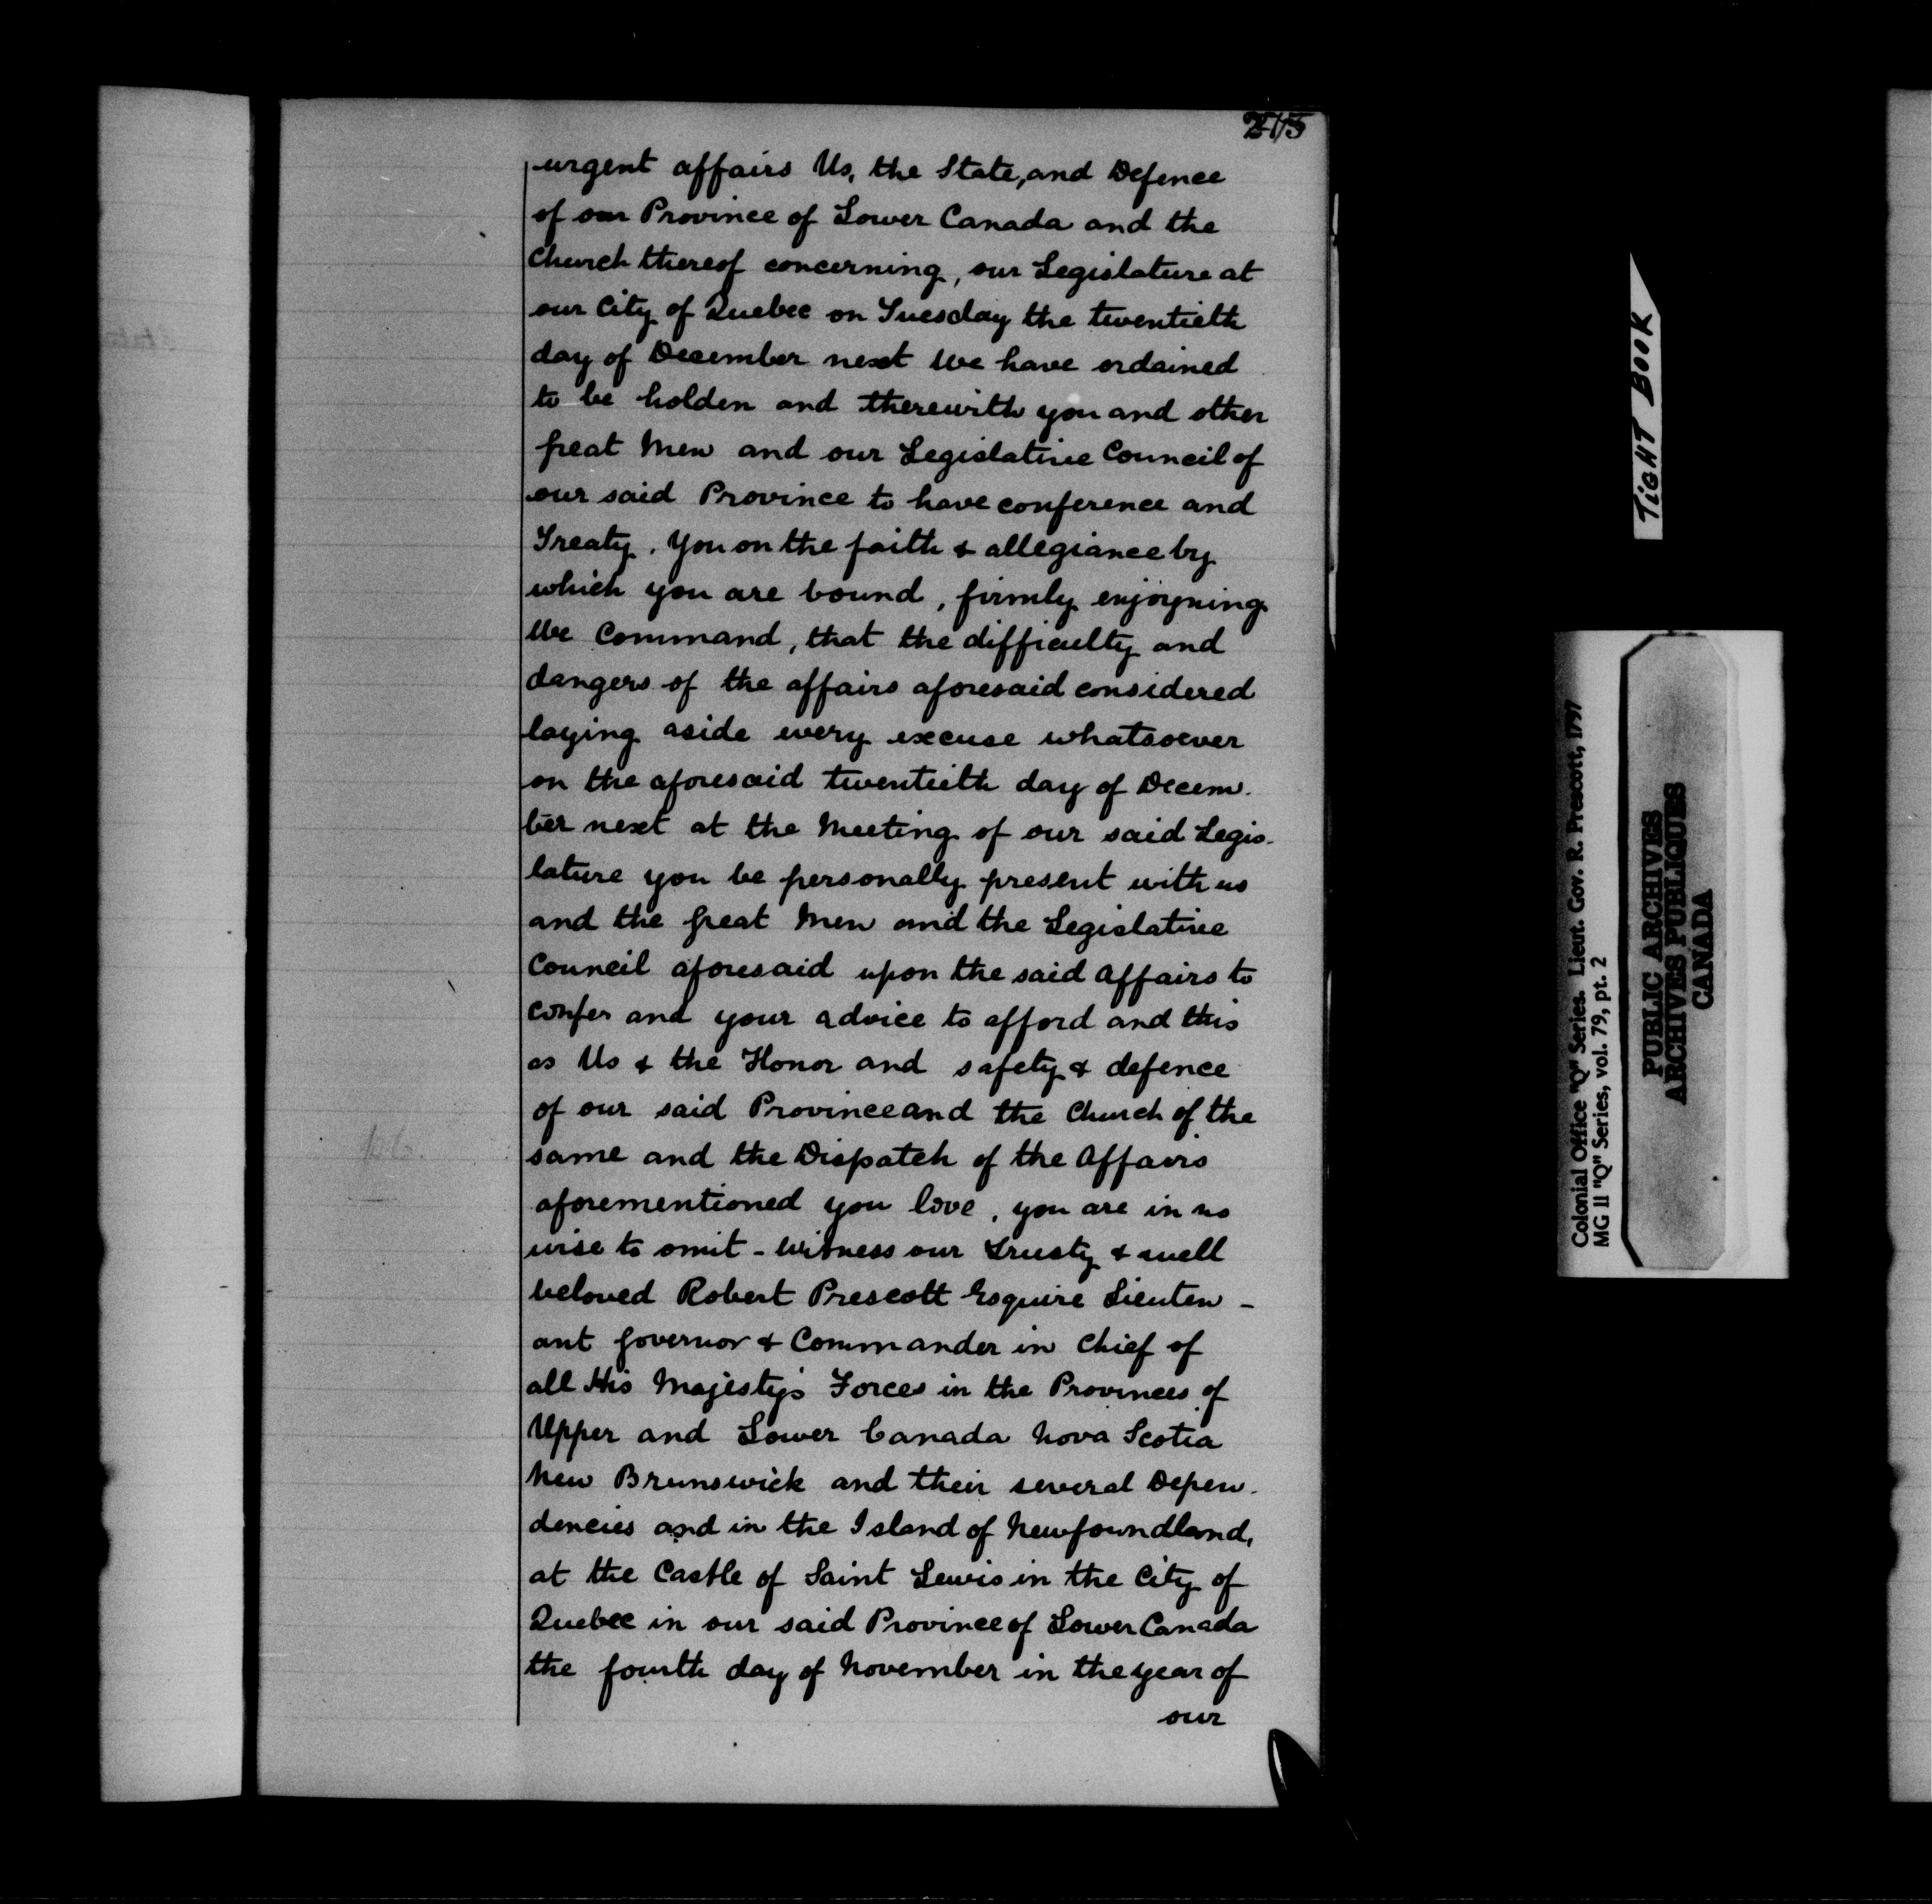 urgent affairs Us, the State, and Defence
of our Province of Lower Canada and the
Church thereof concerning, our Legislature at
our City of Quebec on Tuesday the twentieth
day of December next We have ordained
to be holden and therewith you and other
great Men and our Legislative Council of
our said Province to have conference and
Treaty. You on the faith & allegiance by
which you are bound, firmly enjoyning
We Command, that the difficulty and
dangers of the affairs aforesaid considered
laying aside every excuse whatsoever
on the aforesaid twentieth day of Decem-
ber next at the Meeting of our said Legis-
lature you be personally present with us
and the great Men and the Legislative
Council aforesaid upon the said Affairs to
confer and your advice to afford and this
as Us & the Honor and safety & defence
of our said Province and the Church of the
same and the Dispatch of the Affairs
aforementioned you love, you are in no
wise to omit - Witness our trusty & well
beloved Robert Prescott Esquire Lieuten-
ant Governor & Commander in Chief of
all His Majesty's Forces in the Provinces of
Upper and Lower Canada Nova Scotia
New Brunswick and their several Depen-
dencies and in the Island of Newfoundland,
at the Castle of Saint Lewis in the City of
Quebec in our said Province of Lower Canada
the fourth day of November in the year of
our
TIGHT BOOK
Colonial Office "Q" Series. Lieut. Gov. R. Prescott, 1797
MG 11 "Q" Series, vol. 79, pt. 2
PUBLIC ARCHIVES
ARCHIVES PUBLIQUES
CANADA